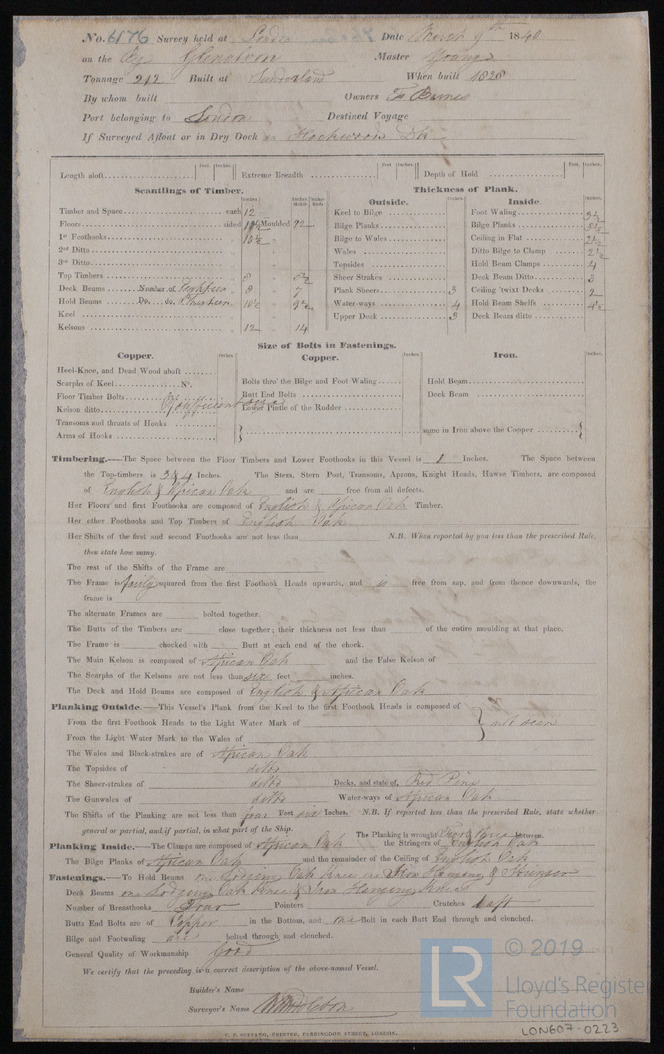 No. 6176 Survey held at London Date March 9th 1840
on the Glenalvon Master Young
Tonnage 212 Built at Sunderland When built 1828
By whom built Owners
Port belonging to London Destined Voyage
If Surveyed Afloat or in Dry Dock Dk
Length aloft Feet. Inches. Extreme Breadth Feet Inches. Depth of Hold Feet. Inches.
Scantlings of Timber.
Inches Inches Middle Inches Ends
Timber and Space each 12
Floors sided Moulded
1st Foothooks
2nd Ditto
3rd Ditto
Top Timbers
Deck Beams Number of 8 7
Hold Beams Do. do. Thirteen
Keel
Kelsons 12 14
Thickness of Plank.
Outside. Inches
Keel to Bilge
Bilge Planks
Bilge to Wales
Wales
Topsides
Sheer Strakes
Plank Sheers 3
Water-ways 4
Upper Deck 3
Inside. Inches.
Foot Waling
Bilge Planks
Ceiling in Flat 2½
Ditto Bilge to Clamp 2½
Hold Beam Clamps 4
Deck Beam Ditto 3
Ceiling 'twixt Decks 2
Hold Beam Shelfs 4½
Deck Beam ditto
Size of Bolts in Fastenings.
Copper. Inches
Heel-Knee, and Dead Wood abaft
Scarphs of Keel No.
Floor Timber Bolts
Kelson ditto Sufficient
Transoms and throats of Hooks
Arms of Hooks
Copper. Inches
Bolts thro' the Bilge and Foot Waling
Butt End Bolts
Lower Pintle of the Rudder
Iron. Inches
Hold Beam
Deck Beam
same in Iron above the Copper
Timbering.—The Space between the Floor Timbers and Lower Foothooks in this Vessel is 1 Inches. The Space between
the Top-timbers is 3 & 4 Inches. The Stem, Stern Post, Transoms, Aprons, Knight Heads, Hawse Timbers, are composed
of English & African Oak and are free from all defects.
Her Floors and first Foothooks are composed of English & African Oak Timber.
Her other Foothooks and Top Timbers of English Oak
Her Shifts of the first and second Foothooks are not less than N.B. When reported by you less than the prescribed Rule,
then state how many.
The rest of the Shifts of the Frame are
The Frame is fairly squared from the first Foothook Heads upwards, and is free from sap, and from thence downwards, the
frame is
The alternate Frames are bolted together.
The Butts of the Timbers are close together; their thickness not less than of the entire moulding at that place.
The Frame is chocked with Butt at each end of the chock.
The Main Kelson is composed of African Oak and the False Kelson of
The Scarphs of the Kelsons are not less than six feet inches.
The Deck and Hold Beams are composed of English & African Oak
Planking Outside.—This Vessel's Plank from the Keel to the first Foothook Heads is composed of
From the first Foothook Heads to the Light Water Mark of not seen
From the Light Water Mark to the Wales of
The Wales and Black-strakes are of African Oak
The Topsides of ditto
The Sheer-strakes of ditto Decks, and state of, Red Pine
The Gunwales of ditto Water-ways of African Oak
The Shifts of the Planking are not less than four Feet six Inches. N.B. If reported less than the prescribed Rule, state whether
general or partial, and if partial, in what part of the Ship. The Planking is wrought three between.
Planking Inside.—The Clamps are composed of African Oak the Stringers of English Oak
The Bilge Planks of African Oak and the remainder of the Ceiling of English Oak
Fastenings.—To Hold Beams one Lodging Oak knee one Iron Hanging & Stringer
Deck Beams one Lodging Oak knee & Iron Hanging knees
Number of Breasthooks Four Pointers Crutches 1 aft
Butts End Bolts are of Copper in the Bottom, and one Bolt in each Butt End through and clenched.
Bilge and Footwaling are bolted through and clenched.
General Quality of Workmanship Good
We certify that the preceding is a correct description of the above-named Vessel.
Builder's Name
Surveyor's Name
C. F. SEYFANG, PRINTER, FARRINGDON STREET, LONDON.
LR © 2019
Lloyd's Register
Foundation
LON607-0223